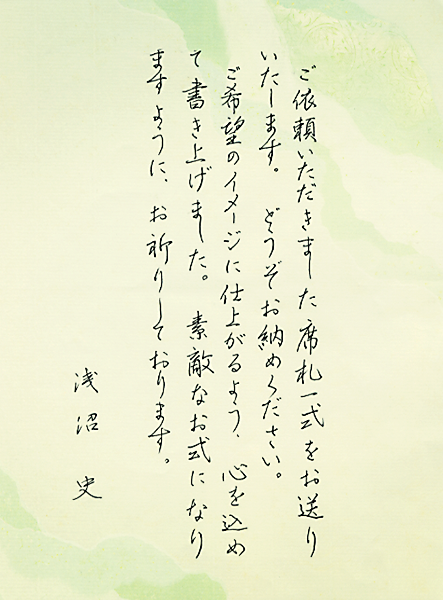 ご依頼いただきました席札一式をお送り
いたします。どうぞお納めください。
ご希望のイメージに仕上がるよう、心を込め
て書き上げました。素敵なお式になり
ますように、お祈りしております。
浅沼 史